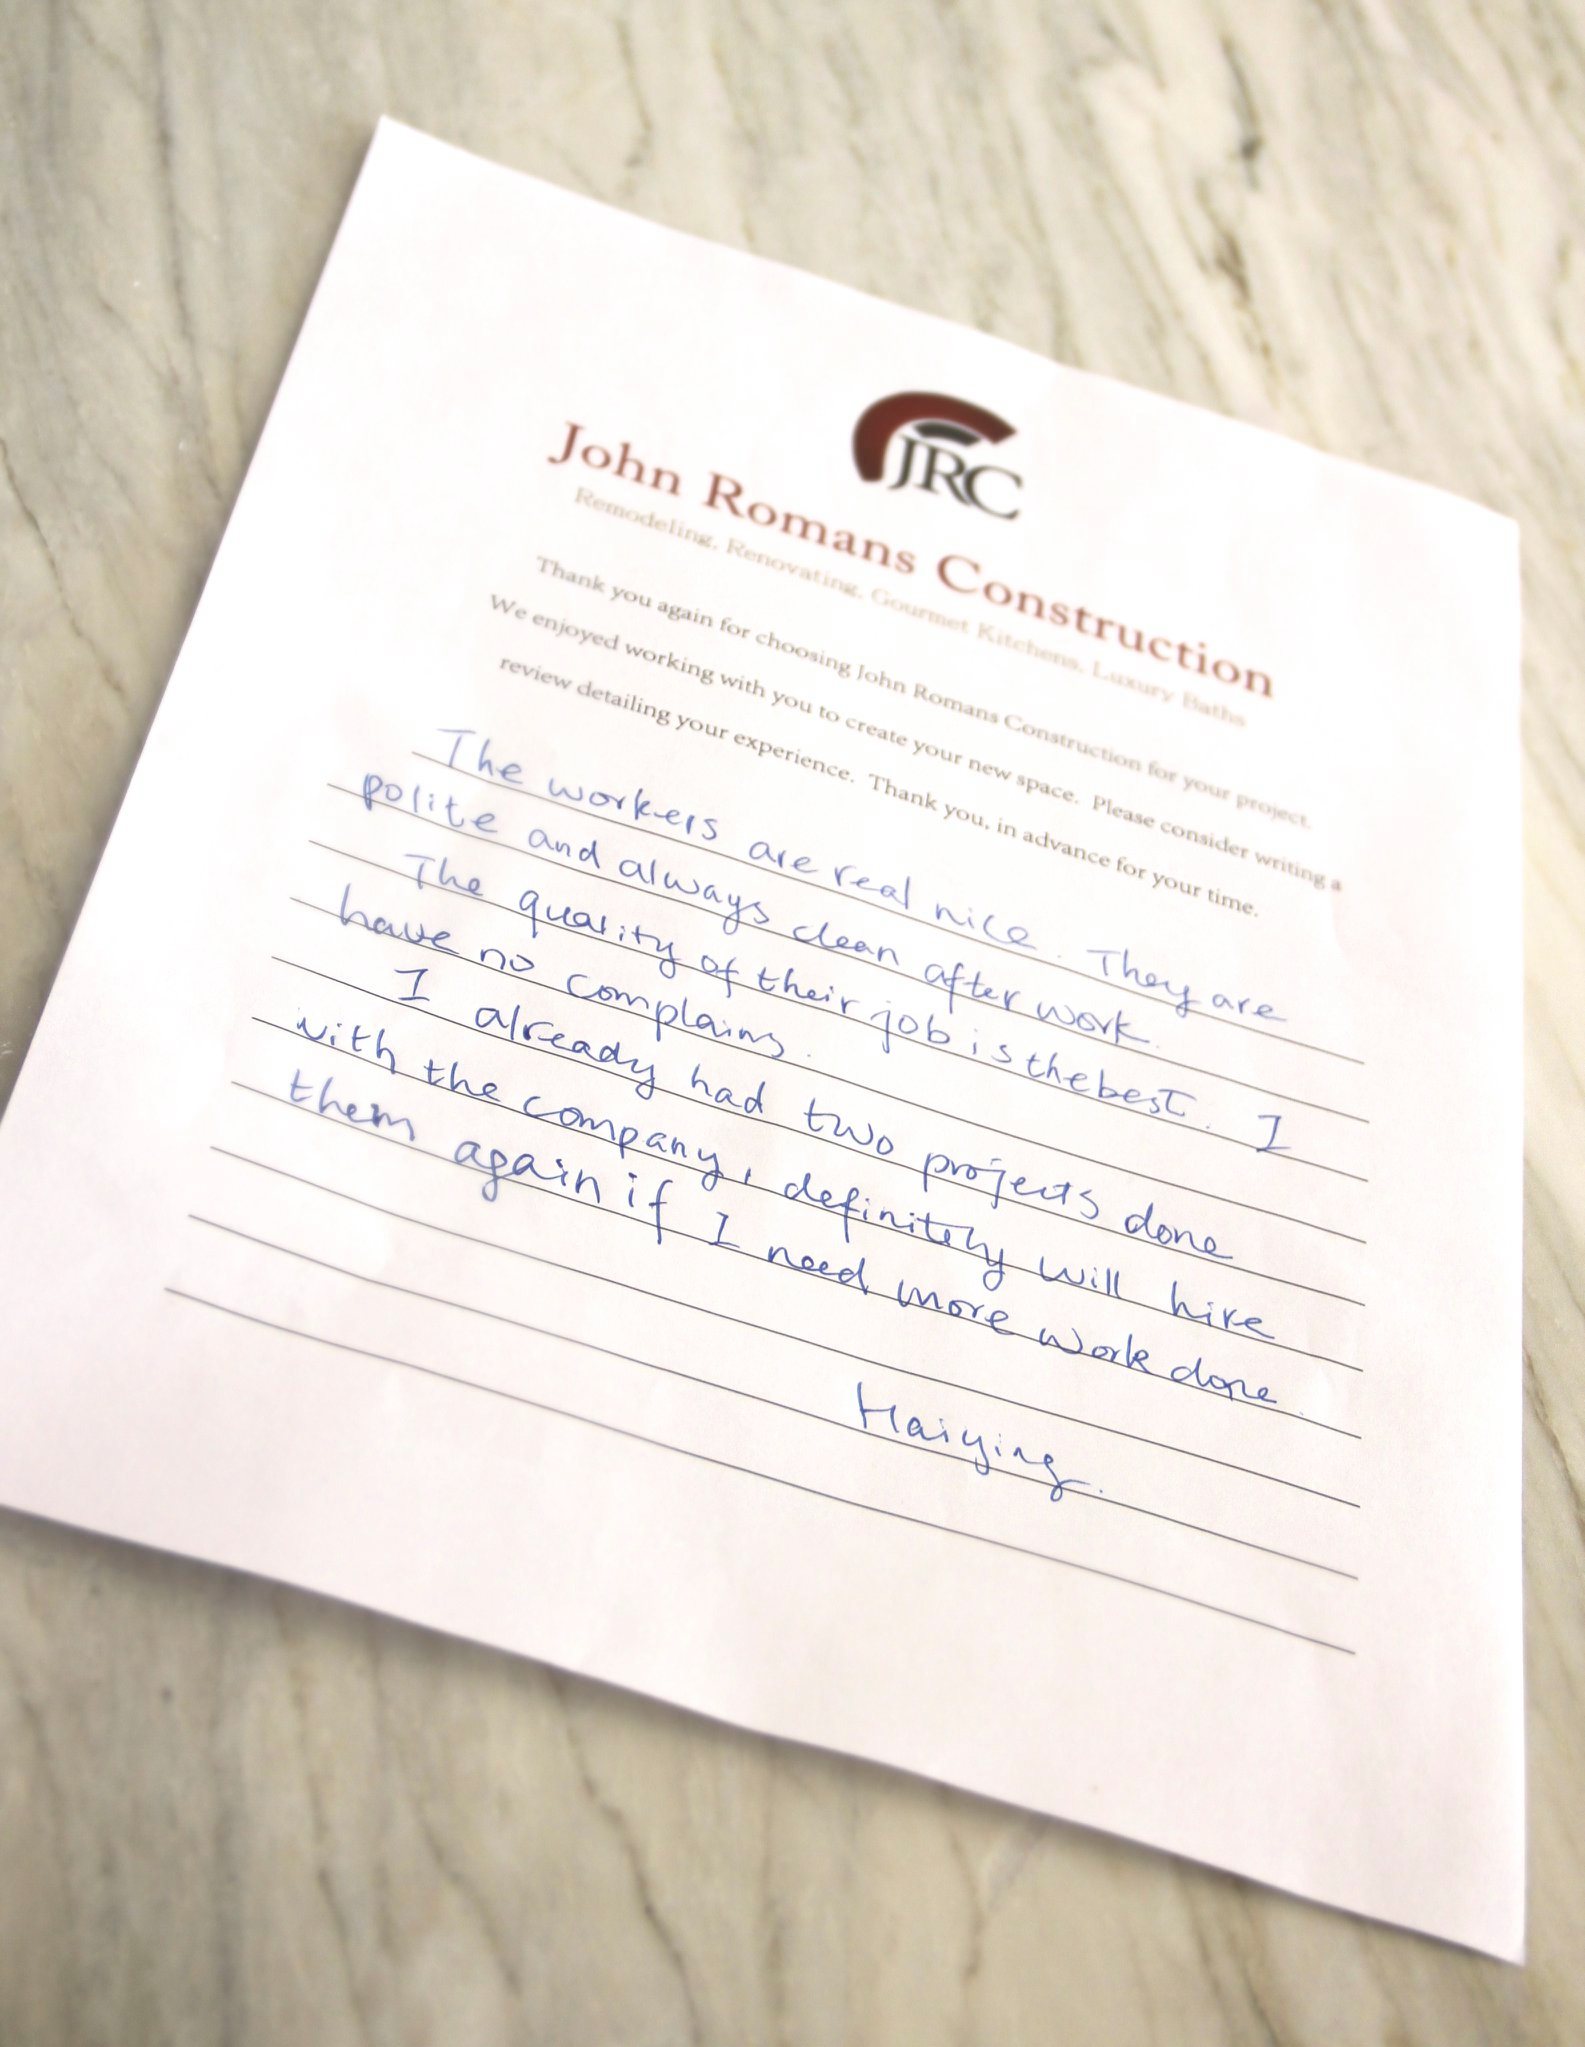 JRC
John Romans Construction
Remodeling, Renovating, Gourmet Kitchens, Luxury Baths
Thank you again for choosing John Romans Construction for your project.
We enjoyed working with you to create your new space. Please consider writing a
review detailing your experience. Thank you, in advance for your time.
The workers are real nice. They are
polite and always clean after work.
The quality of their job is the best. I
have no complains.
I already had two projects done
with the company, definitely will hire
them again if I need more work done.
Haiying.